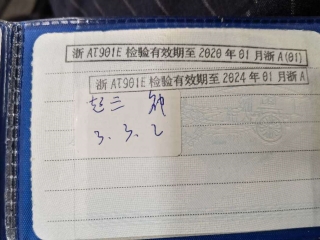 浙 AT901E 检验有效期至 2020 年 01 月浙 A(01)
浙 AT901E 检验有效期至 2024 年 01 月浙 A
3. 3. 2